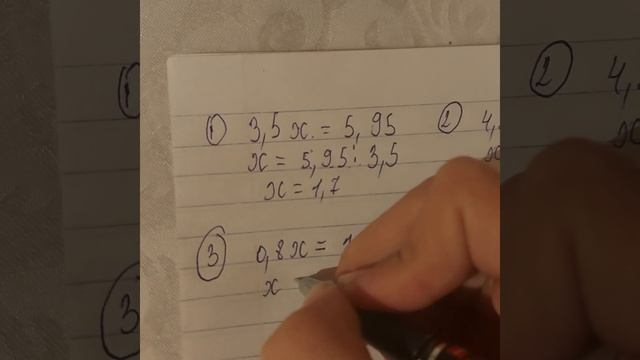 ① 3,5x = 5,95
x = 5,95 : 3,5
x = 1,7
② 4,
x
③ 0,8x =
x